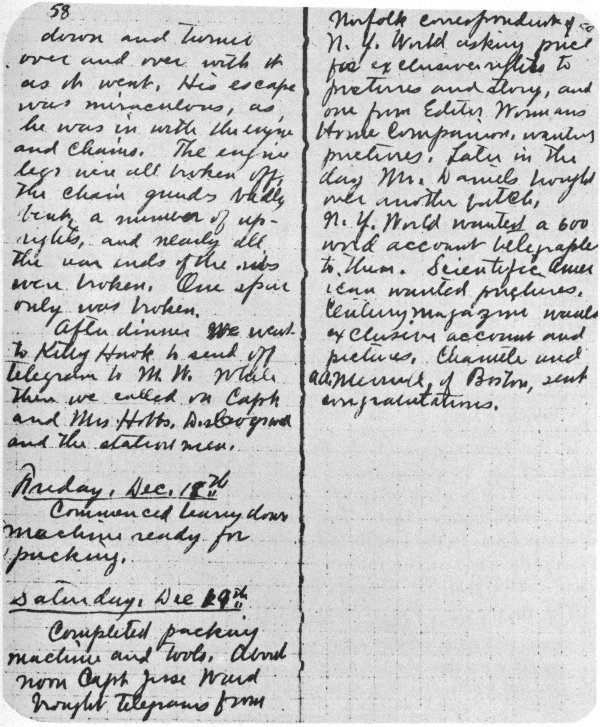 58
down and turned
over and over with it
as it went. His escape
was miraculous, as
he was in with the engine
and chains. The engine
legs were all broken off,
the chain guides badly
bent, a number of up-
rights, and nearly all
the rear ends of the ribs
were broken. One spar
only was broken.
After dinner we went
to Kitty Hawk to send off
telegram to M. W. While
there we called on Capt.
and Mrs Hobbs, Dr. Cogswell
and the station men.
Friday, Dec. 18th
Commenced tearing down
machine ready for
packing.
Saturday, Dec 19th
Completed packing
machine and tools. About
noon Capt Jesse Ward
brought telegrams from
Norfolk correspondent of
N. Y. World asking price
for exclusive rights to
pictures and story, and
one from Editor Womans
Home Companion, wanting
pictures. Later in the
day Mr. Daniels brought
over another batch.
N. Y. World wanted a 600
word account telegraphed
to them. Scientific Amer
ican wanted pictures.
Century magazine wants
exclusive account and
pictures. Chanute and
Merrill, of Boston, sent
congratulations.